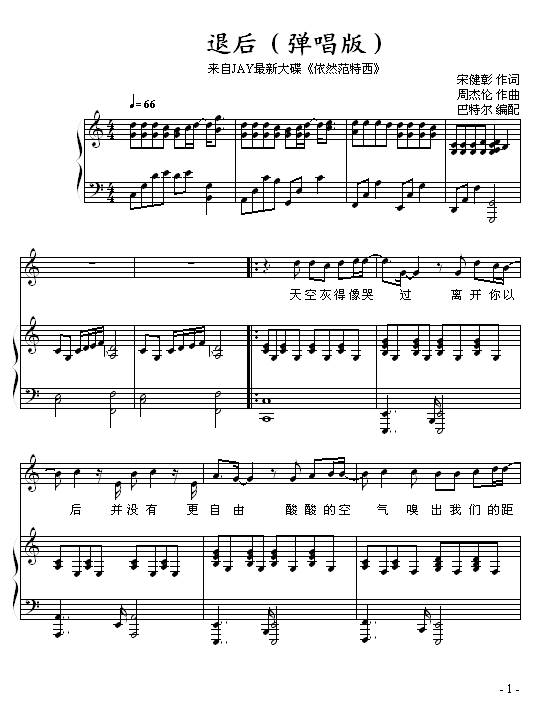 退后（弹唱版）
来自JAY最新大碟《依然范特西》
宋健彰 作词
周杰伦 作曲
巴特尔 编配
♩= 66
天空灰得像哭 过 离开你以
后 并没有 更自由 酸酸的空 气 嗅出我们的距
- 1 -